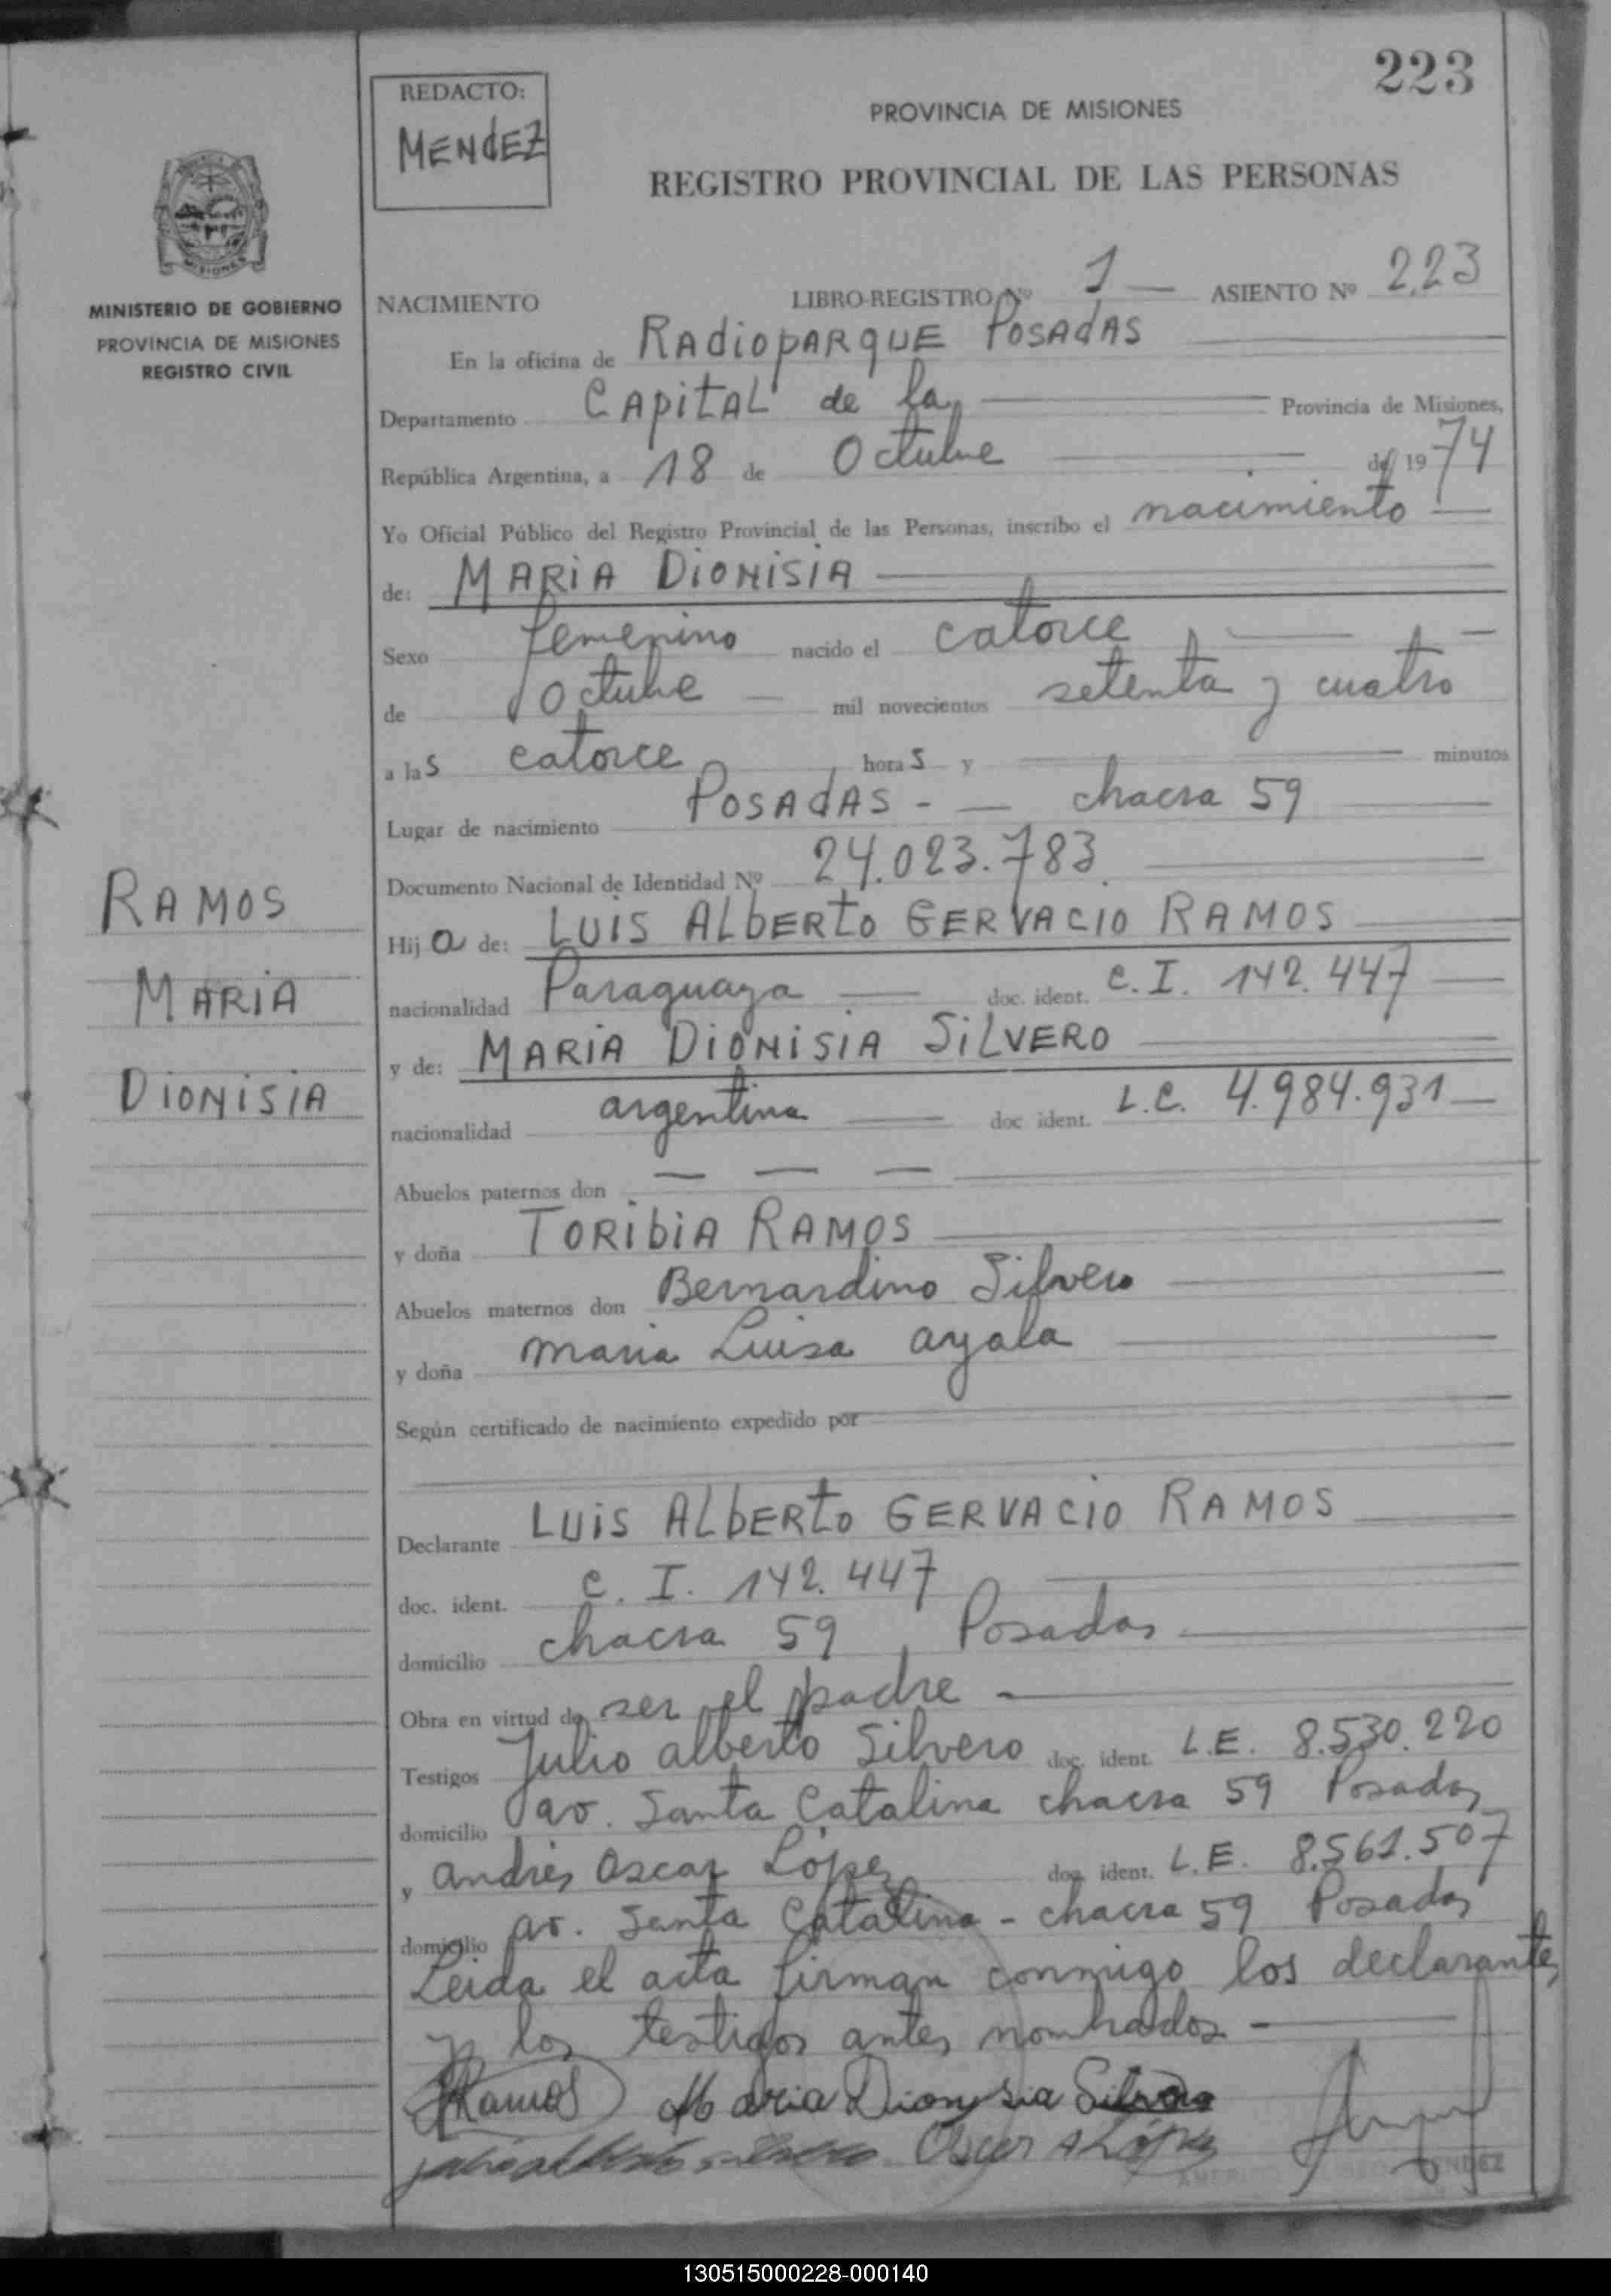 223
REDACTO:
MENdEZ
PROVINCIA DE MISIONES
REGISTRO PROVINCIAL DE LAS PERSONAS
MISIONES
MINISTERIO DE GOBIERNO
PROVINCIA DE MISIONES
REGISTRO CIVIL
NACIMIENTO LIBRO-REGISTRO Nº 1 — ASIENTO Nº 223
En la oficina de RAdiopARqUE POSAdAS
Departamento CApiTAL de la — Provincia de Misiones,
República Argentina, a 18 de Octubre de 1974
Yo Oficial Público del Registro Provincial de las Personas, inscribo el nacimiento —
de: MARiA DiONiSiA
Sexo femenino nacido el catorce —
de Octubre — mil novecientos setenta y cuatro
a las catorce horas y — minutos
Lugar de nacimiento POSAdAS - — chacra 59
Documento Nacional de Identidad Nº 24.023.783.
RAMOS
MARiA
DiONiSiA
Hija de: LUiS ALbERto GERVACiO RAMOS
nacionalidad Paraguaya — doc. ident. C. I. 142.447 —
y de: MARiA DiONiSiA SiLVERO
nacionalidad argentina — doc ident. L.C. 4.984.931 —
Abuelos paternos don — — —
y doña TORibiA RAMOS
Abuelos maternos don Bernardino Silvero
y doña Maria Luisa ayala
Según certificado de nacimiento expedido por
Declarante LUiS ALbERto GERVACiO RAMOS
doc. ident. C. I. 142.447
domicilio chacra 59, Posadas
Obra en virtud de ser el padre -
Testigos Julio alberto Silvero doc. ident. L.E. 8.530.220
domicilio av. Santa Catalina chacra 59 Posadas
y andrés Oscar López doc. ident. L.E. 8.561.507
domicilio av. Santa Catalina - chacra 59 Posadas
Leida el acta firman conmigo los declarantes
y los testigos antes nombrados -
Ramos Maria Dionysia Silvero
julio alberto silvero Oscar A López
MENDEZ
130515000228-000140